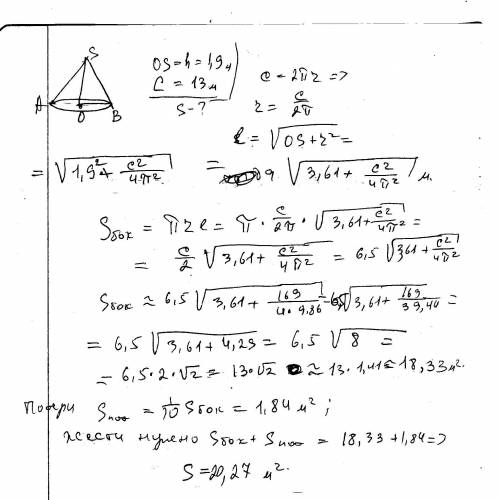 S
A
O
B
OS = h = 1,9 м
C = 13 м
S - ?
c = 2πr =>
r = c/2π
l = √(OS + r²) =
= √(1,9² + c²/4π²) = √(3,61 + c²/4π²) м.
Sбок = πrl = π · c/2π · √(3,61 + c²/4π²) =
= c/2 √(3,61 + c²/4π²) = 6,5 √(3,61 + c²/4π²)
Sбок ≈ 6,5 √(3,61 + 169/4 · 9,86) = 6,5 √(3,61 + 169/39,44) =
= 6,5 √(3,61 + 4,29) = 6,5 √8 =
= 6,5 · 2 · √2 = 13 · √2 ≈ 13 · 1,41 = 18,33 м².
Потери Sпот = 1/10 Sбок = 1,84 м²;
жести нужно Sбок + Sпот = 18,33 + 1,84 =>
S = 20,27 м².